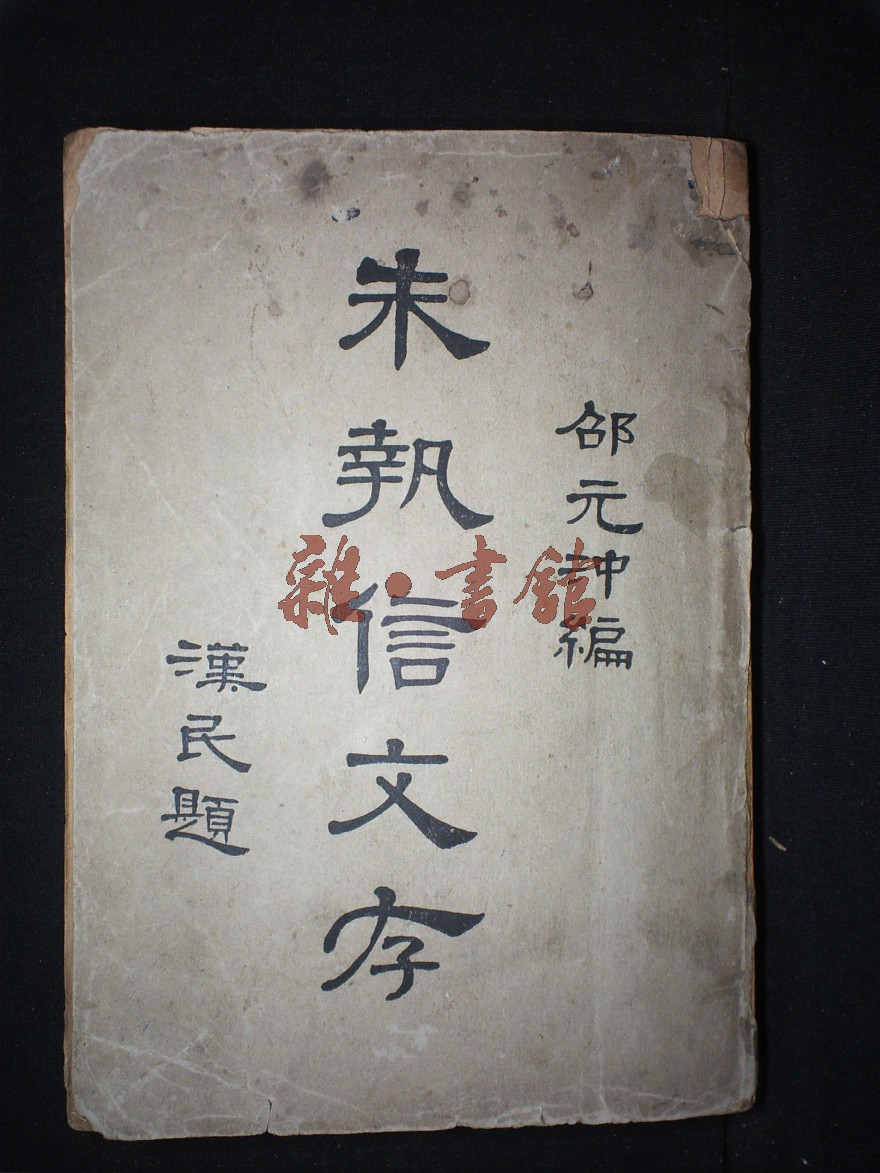 邵元沖編
朱執信文存
漢民題
雜·書館